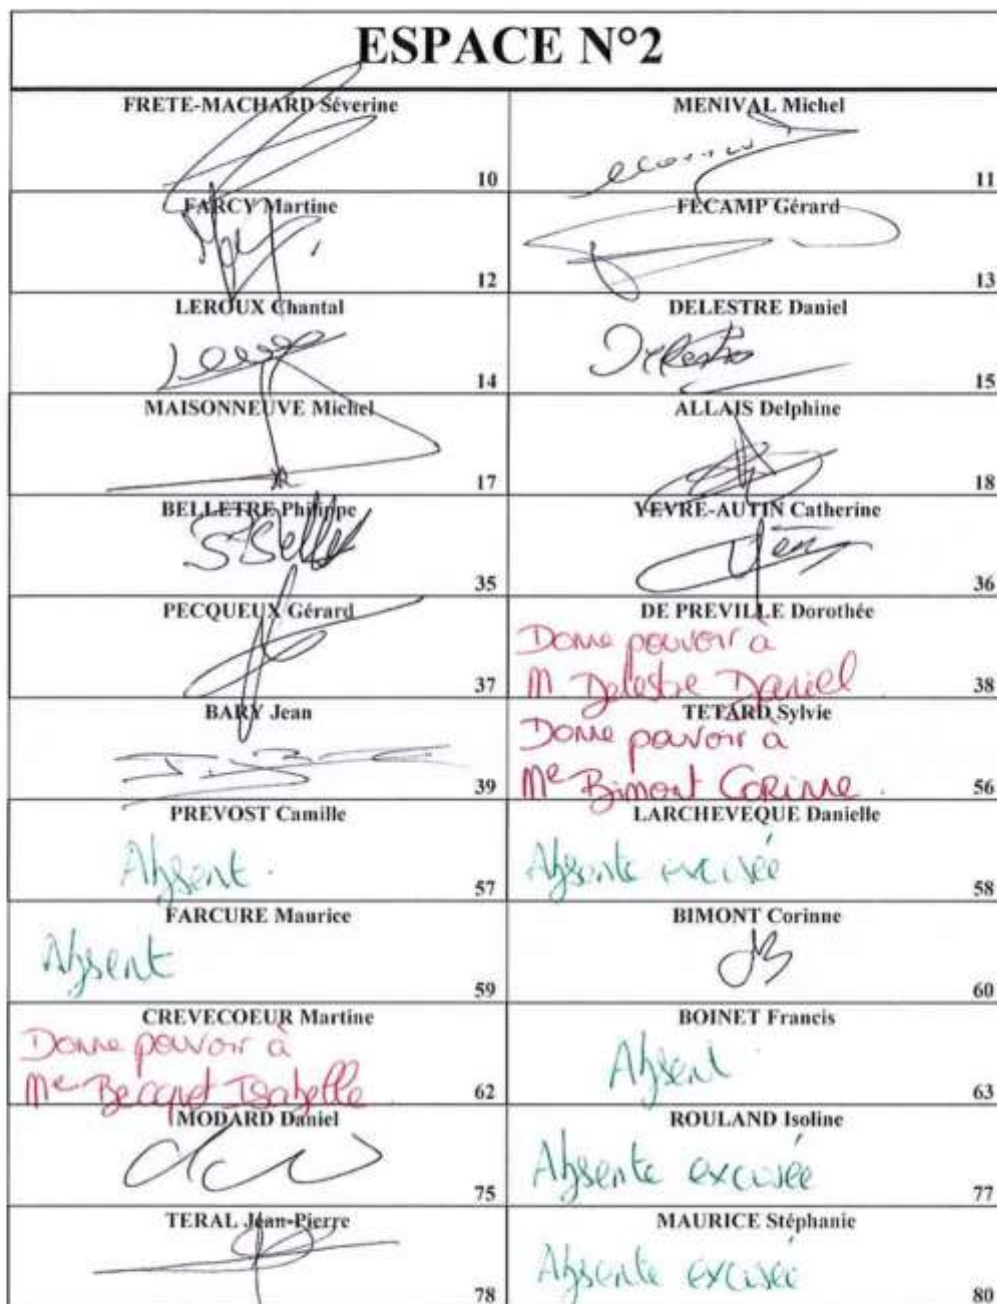 ESPACE N°2
FRETE-MACHARD Séverine
10
MENIVAL Michel
11
FARCY Martine
12
FECAMP Gérard
13
LEROUX Chantal
14
DELESTRE Daniel
Delestre
15
MAISONNEUVE Michel
17
ALLAIS Delphine
18
BELLETRE Philippe
35
YEVRE-AUTIN Catherine
36
PECQUEUX Gérard
37
DE PREVILLE Dorothée
Donne pouvoir à
M Delestre Daniel.
38
BARY Jean
39
TETARD Sylvie
Donne pouvoir à
Me Bimont Corinne.
56
PREVOST Camille
Absent.
57
LARCHEVEQUE Danielle
Absente excusée
58
FARCURE Maurice
Absent
59
BIMONT Corinne
60
CREVECOEUR Martine
Donne pouvoir à
Me Becquet Isabelle.
62
BOINET Francis
Absent.
63
MODARD Daniel
75
ROULAND Isoline
Absente excusée
77
TERAL Jean-Pierre
78
MAURICE Stéphanie
Absente excusée
80